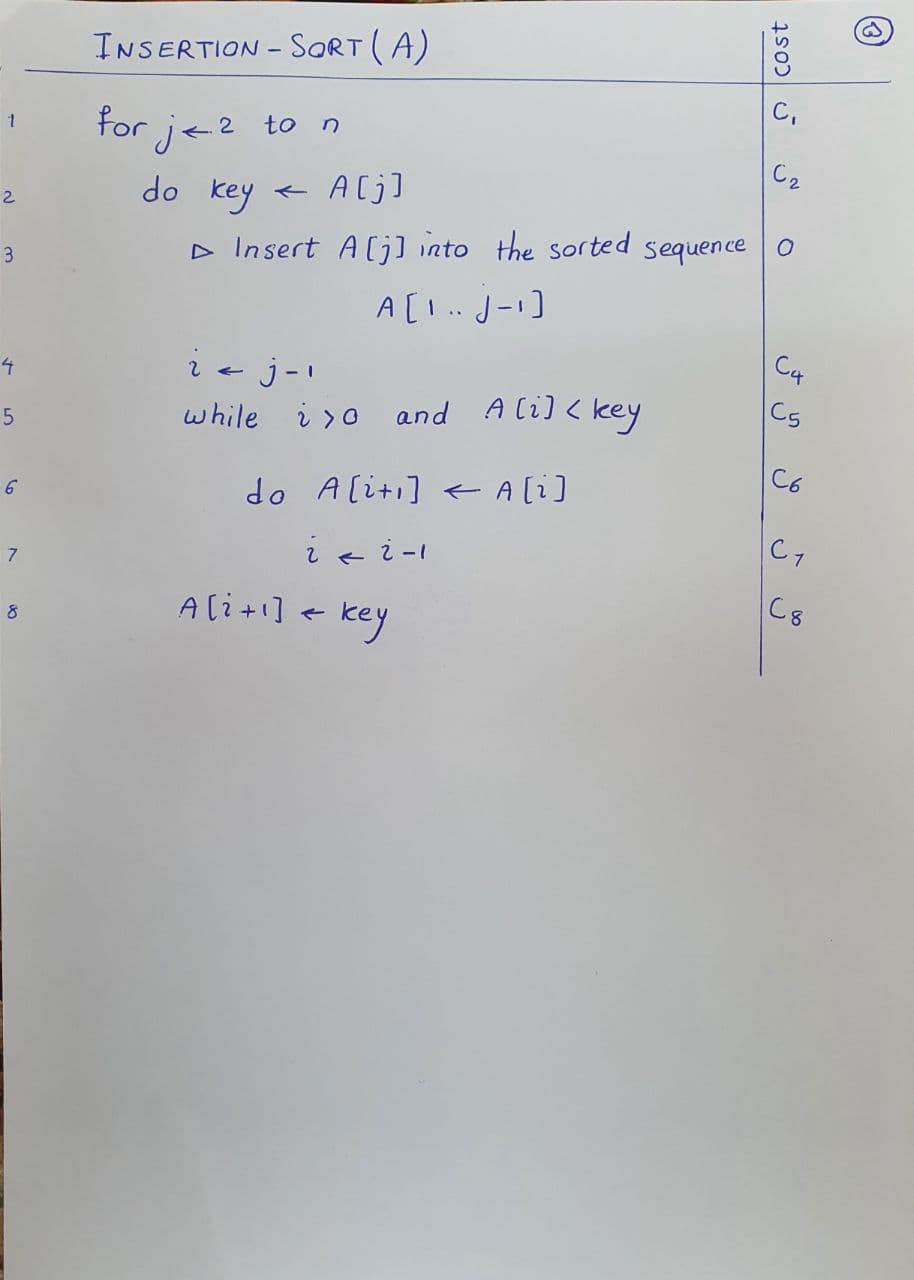 INSERTION-SORT(A) cost
1 for j ← 2 to n C₁
2 do key ← A[j] C₂
3 ▷ Insert A[j] into the sorted sequence 0
A[1 .. j-1]
4 i ← j-1 C₄
5 while i > 0 and A[i] < key C₅
6 do A[i+1] ← A[i] C₆
7 i ← i-1 C₇
8 A[i+1] ← key C₈